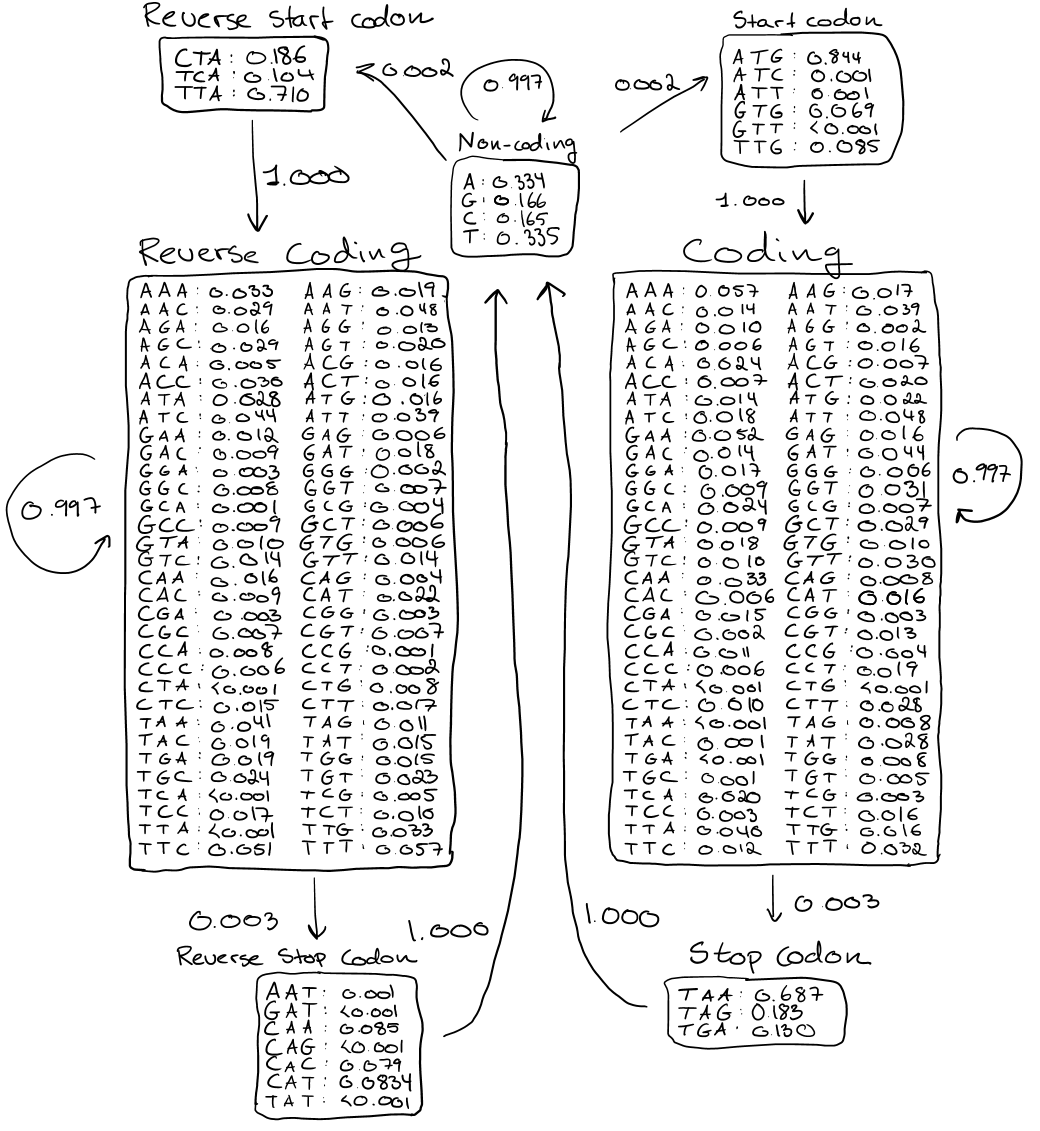 Reverse start codon
CTA: 0.186
TCA: 0.104
TTA: 0.710
0.002
0.997
0.002
Start codon
ATG: 0.844
ATC: 0.001
ATT: 0.001
GTG: 0.069
GTT: <0.001
TTG: 0.085
Non-coding
A: 0.334
G: 0.166
C: 0.165
T: 0.335
1.000
1.000
Reverse Coding
AAA: 0.033 AAG: 0.019
AAC: 0.029 AAT: 0.048
AGA: 0.016 AGG: 0.013
AGC: 0.029 AGT: 0.020
ACA: 0.005 ACG: 0.016
ACC: 0.030 ACT: 0.016
ATA: 0.028 ATG: 0.016
ATC: 0.044 ATT: 0.039
GAA: 0.012 GAG: 0.006
GAC: 0.009 GAT: 0.018
GGA: 0.003 GGG: 0.002
GGC: 0.008 GGT: 0.007
GCA: 0.001 GCG: 0.004
GCC: 0.009 GCT: 0.006
GTA: 0.010 GTG: 0.006
GTC: 0.014 GTT: 0.014
CAA: 0.016 CAG: 0.004
CAC: 0.009 CAT: 0.022
CGA: 0.003 CGG: 0.003
CGC: 0.007 CGT: 0.007
CCA: 0.008 CCG: 0.001
CCC: 0.006 CCT: 0.002
CTA: <0.001 CTG: 0.008
CTC: 0.015 CTT: 0.017
TAA: 0.041 TAG: 0.011
TAC: 0.019 TAT: 0.015
TGA: 0.019 TGG: 0.015
TGC: 0.024 TGT: 0.023
TCA: <0.001 TCG: 0.005
TCC: 0.017 TCT: 0.010
TTA: <0.001 TTG: 0.033
TTC: 0.051 TTT: 0.057
0.997
Coding
AAA: 0.057 AAG: 0.017
AAC: 0.014 AAT: 0.039
AGA: 0.010 AGG: 0.002
AGC: 0.006 AGT: 0.016
ACA: 0.024 ACG: 0.007
ACC: 0.007 ACT: 0.020
ATA: 0.014 ATG: 0.022
ATC: 0.018 ATT: 0.048
GAA: 0.052 GAG: 0.016
GAC: 0.014 GAT: 0.044
GGA: 0.017 GGG: 0.006
GGC: 0.009 GGT: 0.031
GCA: 0.024 GCG: 0.007
GCC: 0.009 GCT: 0.029
GTA: 0.018 GTG: 0.010
GTC: 0.010 GTT: 0.030
CAA: 0.033 CAG: 0.008
CAC: 0.006 CAT: 0.016
CGA: 0.015 CGG: 0.003
CGC: 0.002 CGT: 0.013
CCA: 0.011 CCG: 0.004
CCC: 0.006 CCT: 0.019
CTA: <0.001 CTG: <0.001
CTC: 0.010 CTT: 0.028
TAA: <0.001 TAG: 0.008
TAC: 0.001 TAT: 0.028
TGA: <0.001 TGG: 0.008
TGC: 0.001 TGT: 0.005
TCA: 0.020 TCG: 0.003
TCC: 0.003 TCT: 0.016
TTA: 0.040 TTG: 0.016
TTC: 0.012 TTT: 0.032
0.997
0.003
1.000
1.000
0.003
Reverse Stop Codon
AAT: 0.001
GAT: <0.001
CAA: 0.085
CAG: <0.001
CAC: 0.079
CAT: 0.0834
TAT: <0.001
Stop codon
TAA: 0.687
TAG: 0.183
TGA: 0.130